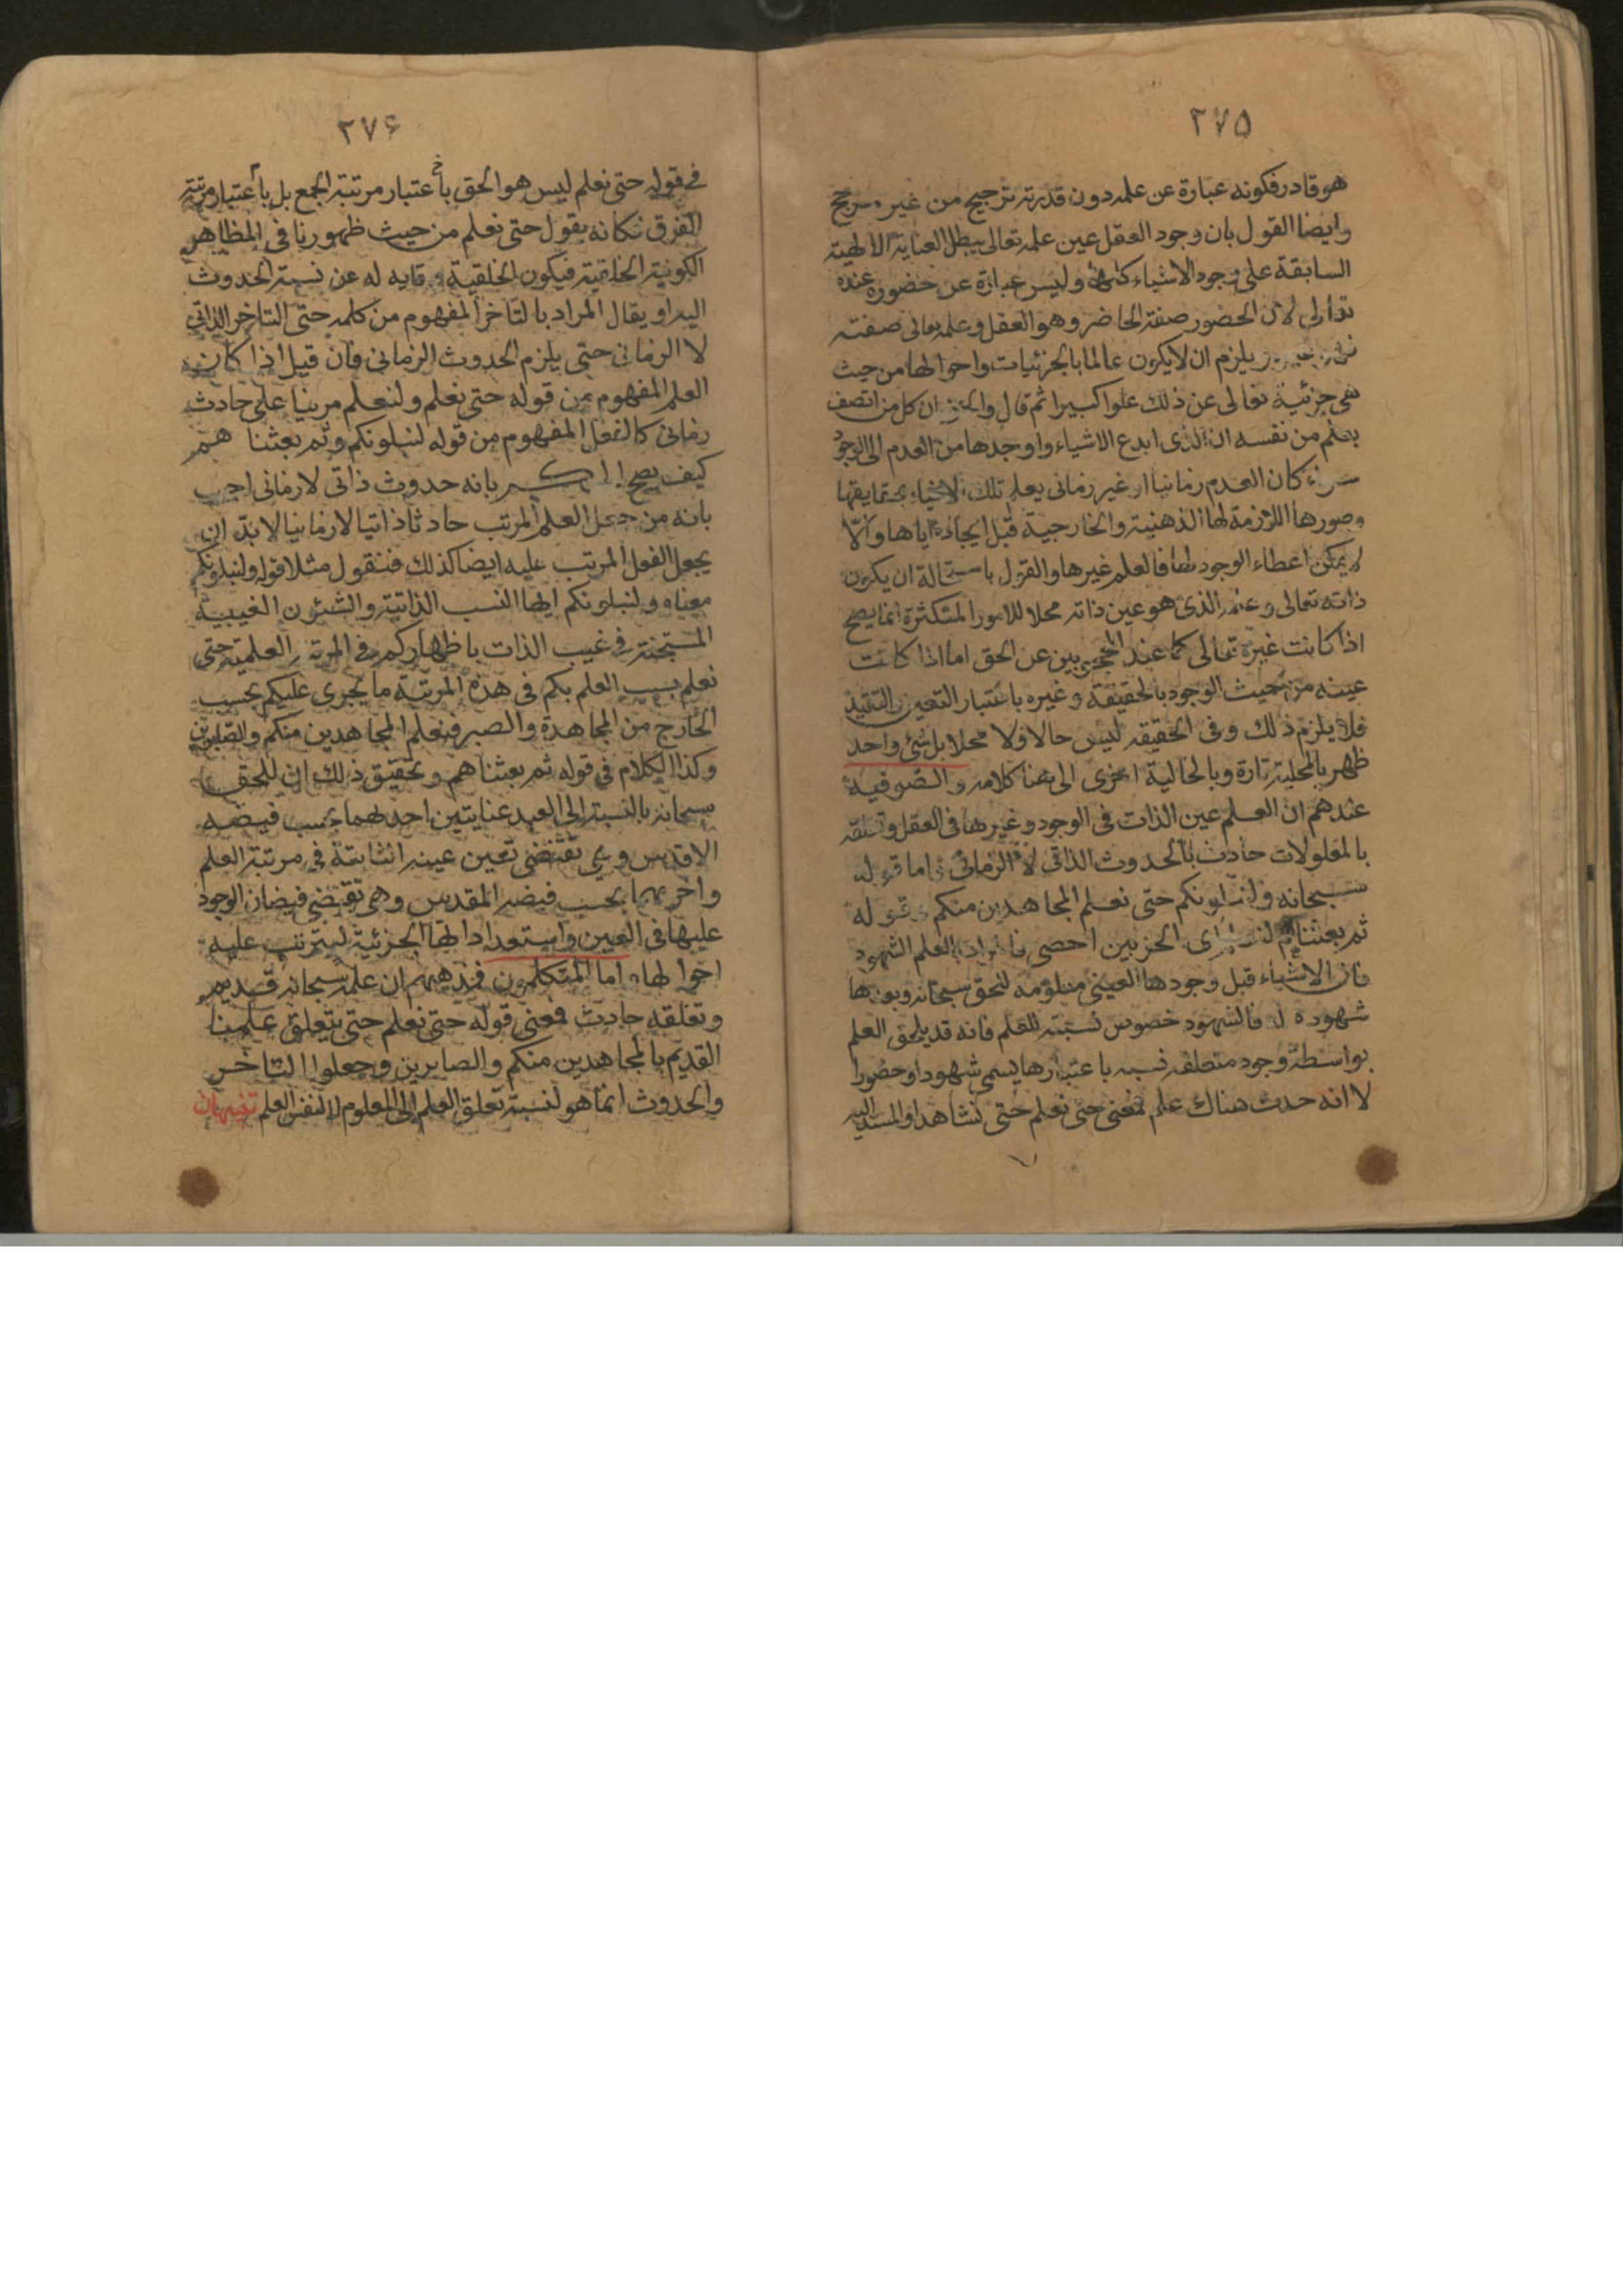 ٢٧٥
هو قادر فكونه عبارة عن علمه دون قدرته ترجيح من غير مرجح
وايضا القول بان وجود العقل عين علمه تعالى يبطل العناية الالهية
السابقة على وجود الاشياء كلها وليس عبارة عن حضوره عنده
تعالى لان الحضور صفة الحاضر وهو العقل وعلمه تعالى صفته
يلزم ان لا يكون عالما بالجزئيات واحوالها من حيث
هى جزئية تعالى عن ذلك علوا كبيرا ثم قال والحق ان كل من اتصف
يعلم من نفسه ان الذى ابدع الاشياء واوجدها من العدم الى الوجود
سواء كان العدم زمانيا او غير زمانى يعلم تلك الاشياء بحقايقها
وصورها اللازمة لها الذهنية والخارجية قبل ايجاده اياها والّا
لا يمكن اعطاء الوجود لها فالعلم غيرها والقول باستحالة ان يكون
ذاته تعالى وعلمه الذى هو عين ذاته محلا للامور المتكثرة انما يصح
اذا كانت غيره تعالى كما عند المحجوبين عن الحق اما اذا كانت
عينه من حيث الوجود بالحقيقة وغيره باعتبار التعين والتقيد
فلا يلزم ذلك وفى الحقيقة ليس حالا ولا محلا بل شئ واحد
ظهر بالمحلية تارة وبالحالية اخرى الى هنا كلامه والصوفية
عندهم ان العلم عين الذات فى الوجود وغيرها فى العقل وتعلقه
بالمعلولات حادث بالحدوث الذاتى لا الزمانى واما قوله
سبحانه ولنبلونكم حتى نعلم المجاهدين منكم وقوله
ثم بعثناهم لنعلم اى الحزبين احصى فالمراد بالعلم الشهود
فان الاشياء قبل وجودها العينى معلومة للحق سبحانه وبعدها
شهوده له فالشهود خصوص نسبته للعلم فانه قد يلحق العلم
بواسطة وجود متعلقه نسبه باعتبارها يسمى شهودا وحضورا
لا انه حدث هناك علم فمعنى حتى نعلم حتى نشاهد او المسند اليه
٢٧۶
فى قوله حتى نعلم ليس هو الحق باعتبار مرتبة الجمع بل باعتبار مرتبة
الفرق فكانه يقول حتى نعلم من حيث ظهورنا فى المظاهر
الكونية الخلقية فيكون الخلقية وقايه له عن نسبة الحدوث
اليه او يقال المراد بالتاخر المفهوم من كلمه حتى التاخر الذاتى
لا الزمانى حتى يلزم الحدوث الزمانى فان قيل اذا كان
العلم المفهوم من قوله حتى نعلم ولنعلم مرتبا على حادث
زمانى كالفعل المفهوم من قوله لنبلونكم وثم بعثناهم
كيف يصح الحكم بانه حدوث ذاتى لا زمانى اجيب
بانه من جعل العلم المرتب حادثا ذاتيا لا زمانيا لا بدّ ان
يجعل الفعل المرتب عليه ايضا كذلك فنقول مثلا قوله ولنبلونكم
معناه ولنبلونكم ايها النسب الذاتية والشئون الغيبية
المستجنة فى غيب الذات باظهاركم فى المرتبة العلمية حتى
نعلم بسبب العلم بكم فى هذه المرتبة ما يجرى عليكم بحسب
الخارج من المجاهدة والصبر فنعلم المجاهدين منكم والصابرين
وكذا الكلام فى قوله ثم بعثناهم وتحقيق ذلك ان للحق
سبحانه بالنسبة الى العبد عنايتين احدهما بحسب فيضه
الاقدس وهى تقتضى تعين عينه الثابتة فى مرتبة العلم
واخريهما بحسب فيضه المقدس وهى تقتضى فيضان الوجود
عليها فى العين واستعداداتها الجزئية ليترتب عليه
احوالها واما المتكلمون فمذهبهم ان علمه سبحانه قديم
وتعلقه حادث فمعنى قوله حتى نعلم حتى يتعلق علمنا
القديم بالمجاهدين منكم والصابرين وجعلوا التاخر
والحدوث انما هو لنسبة تعلق العلم الى المعلوم لا لنفس العلم تنبيهان